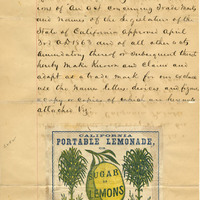 ions of An Act concerning Trade Marks
and Names of the Legislature of the
State of California Approved April
3rd A.D. 1863 and of all other acts
amendatory thereof or Subsequent thereto
hereby make known and claim and
adopt as a trade mark for our exclusive
use the Name letters devices and figures
a copy or copies of which are hereunto
attached Viz.
CALIFORNIA
PORTABLE LEMONADE,
OR
SUGAR
OF
LEMONS